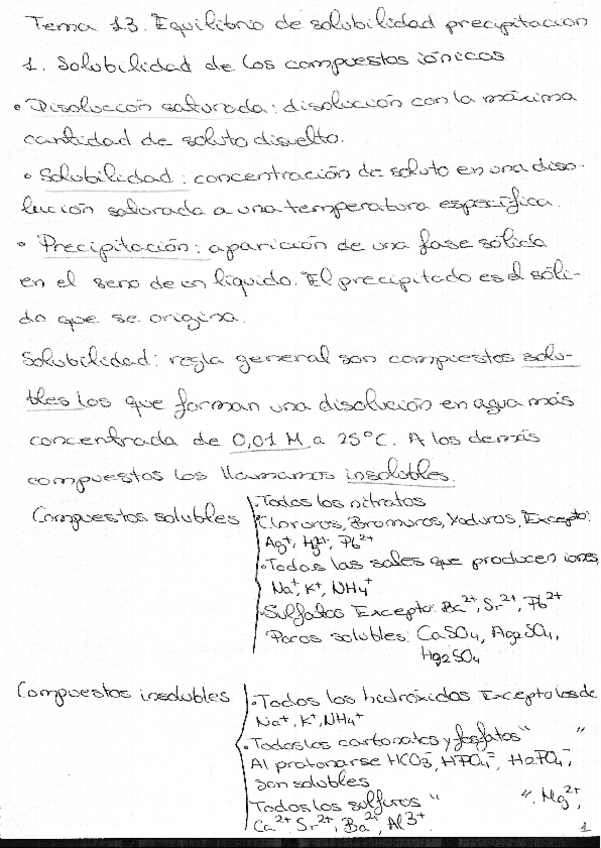 Tema 13. Equilibrio de solubilidad precipitacion
1. Solubilidad de los compuestos iónicos
• Disolución saturada: disolución con la máxima
cantidad de soluto disuelto.
• Solubilidad: concentración de soluto en una diso-
lución saturada a una temperatura específica.
• Precipitación: aparición de una fase sólida
en el seno de un líquido. El precipitado es el sóli-
do que se origina.
Solubilidad: regla general son compuestos solu-
bles los que forman una disolución en agua más
concentrada de 0,01 M a 25°C. A los demás
compuestos los llamamos insolubles.
Compuestos solubles
• Todos los nitratos
Cloruros, Bromuros, Yoduros, Excepto:
Ag⁺, Hg₂²⁺, Pb²⁺
• Todas las sales que producen iones,
Na⁺, K⁺, NH₄⁺
• Sulfatos Excepto: Ba²⁺, Sr²⁺, Pb²⁺
Pocos solubles: CaSO₄, Ag₂SO₄,
Hg₂SO₄
Compuestos insolubles
• Todos los hidróxidos Excepto los de
Na⁺, K⁺, NH₄⁺
• Todos los carbonatos y fosfatos " "
Al protonarse HCO₃⁻, HPO₄⁻, H₂PO₄⁻,
son solubles
Todos los sulfuros " ". Mg²⁺,
Ca²⁺, Sr²⁺, Ba²⁺, Al³⁺
1